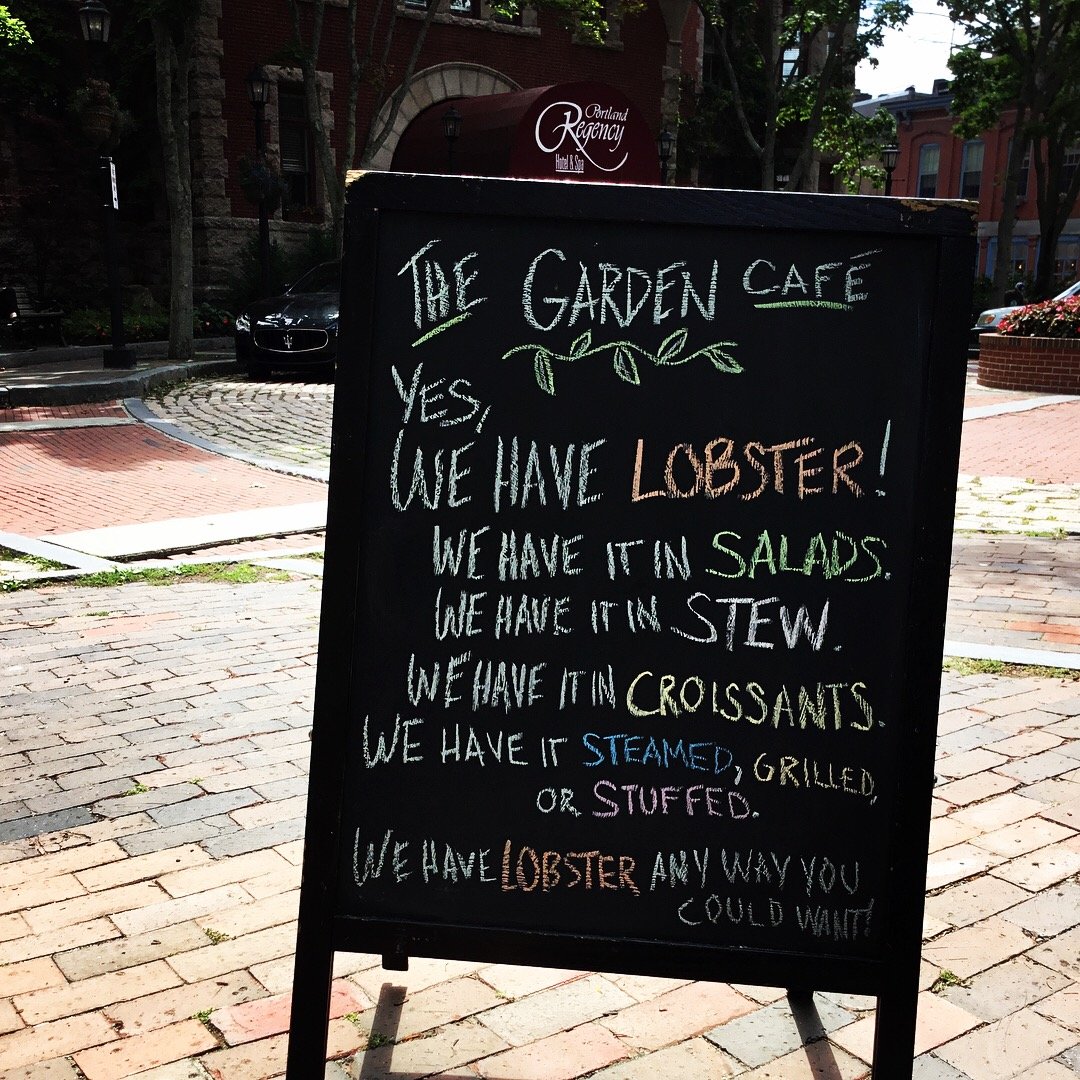 Portland
Regency
Hotel & Spa
THE GARDEN CAFÉ
YES,
WE HAVE LOBSTER!
WE HAVE IT IN SALADS.
WE HAVE IT IN STEW.
WE HAVE IT IN CROISSANTS.
WE HAVE IT STEAMED, GRILLED,
OR STUFFED.
WE HAVE LOBSTER ANY WAY YOU
COULD WANT!